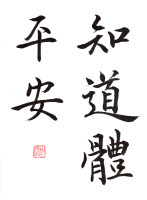 知道體
平安